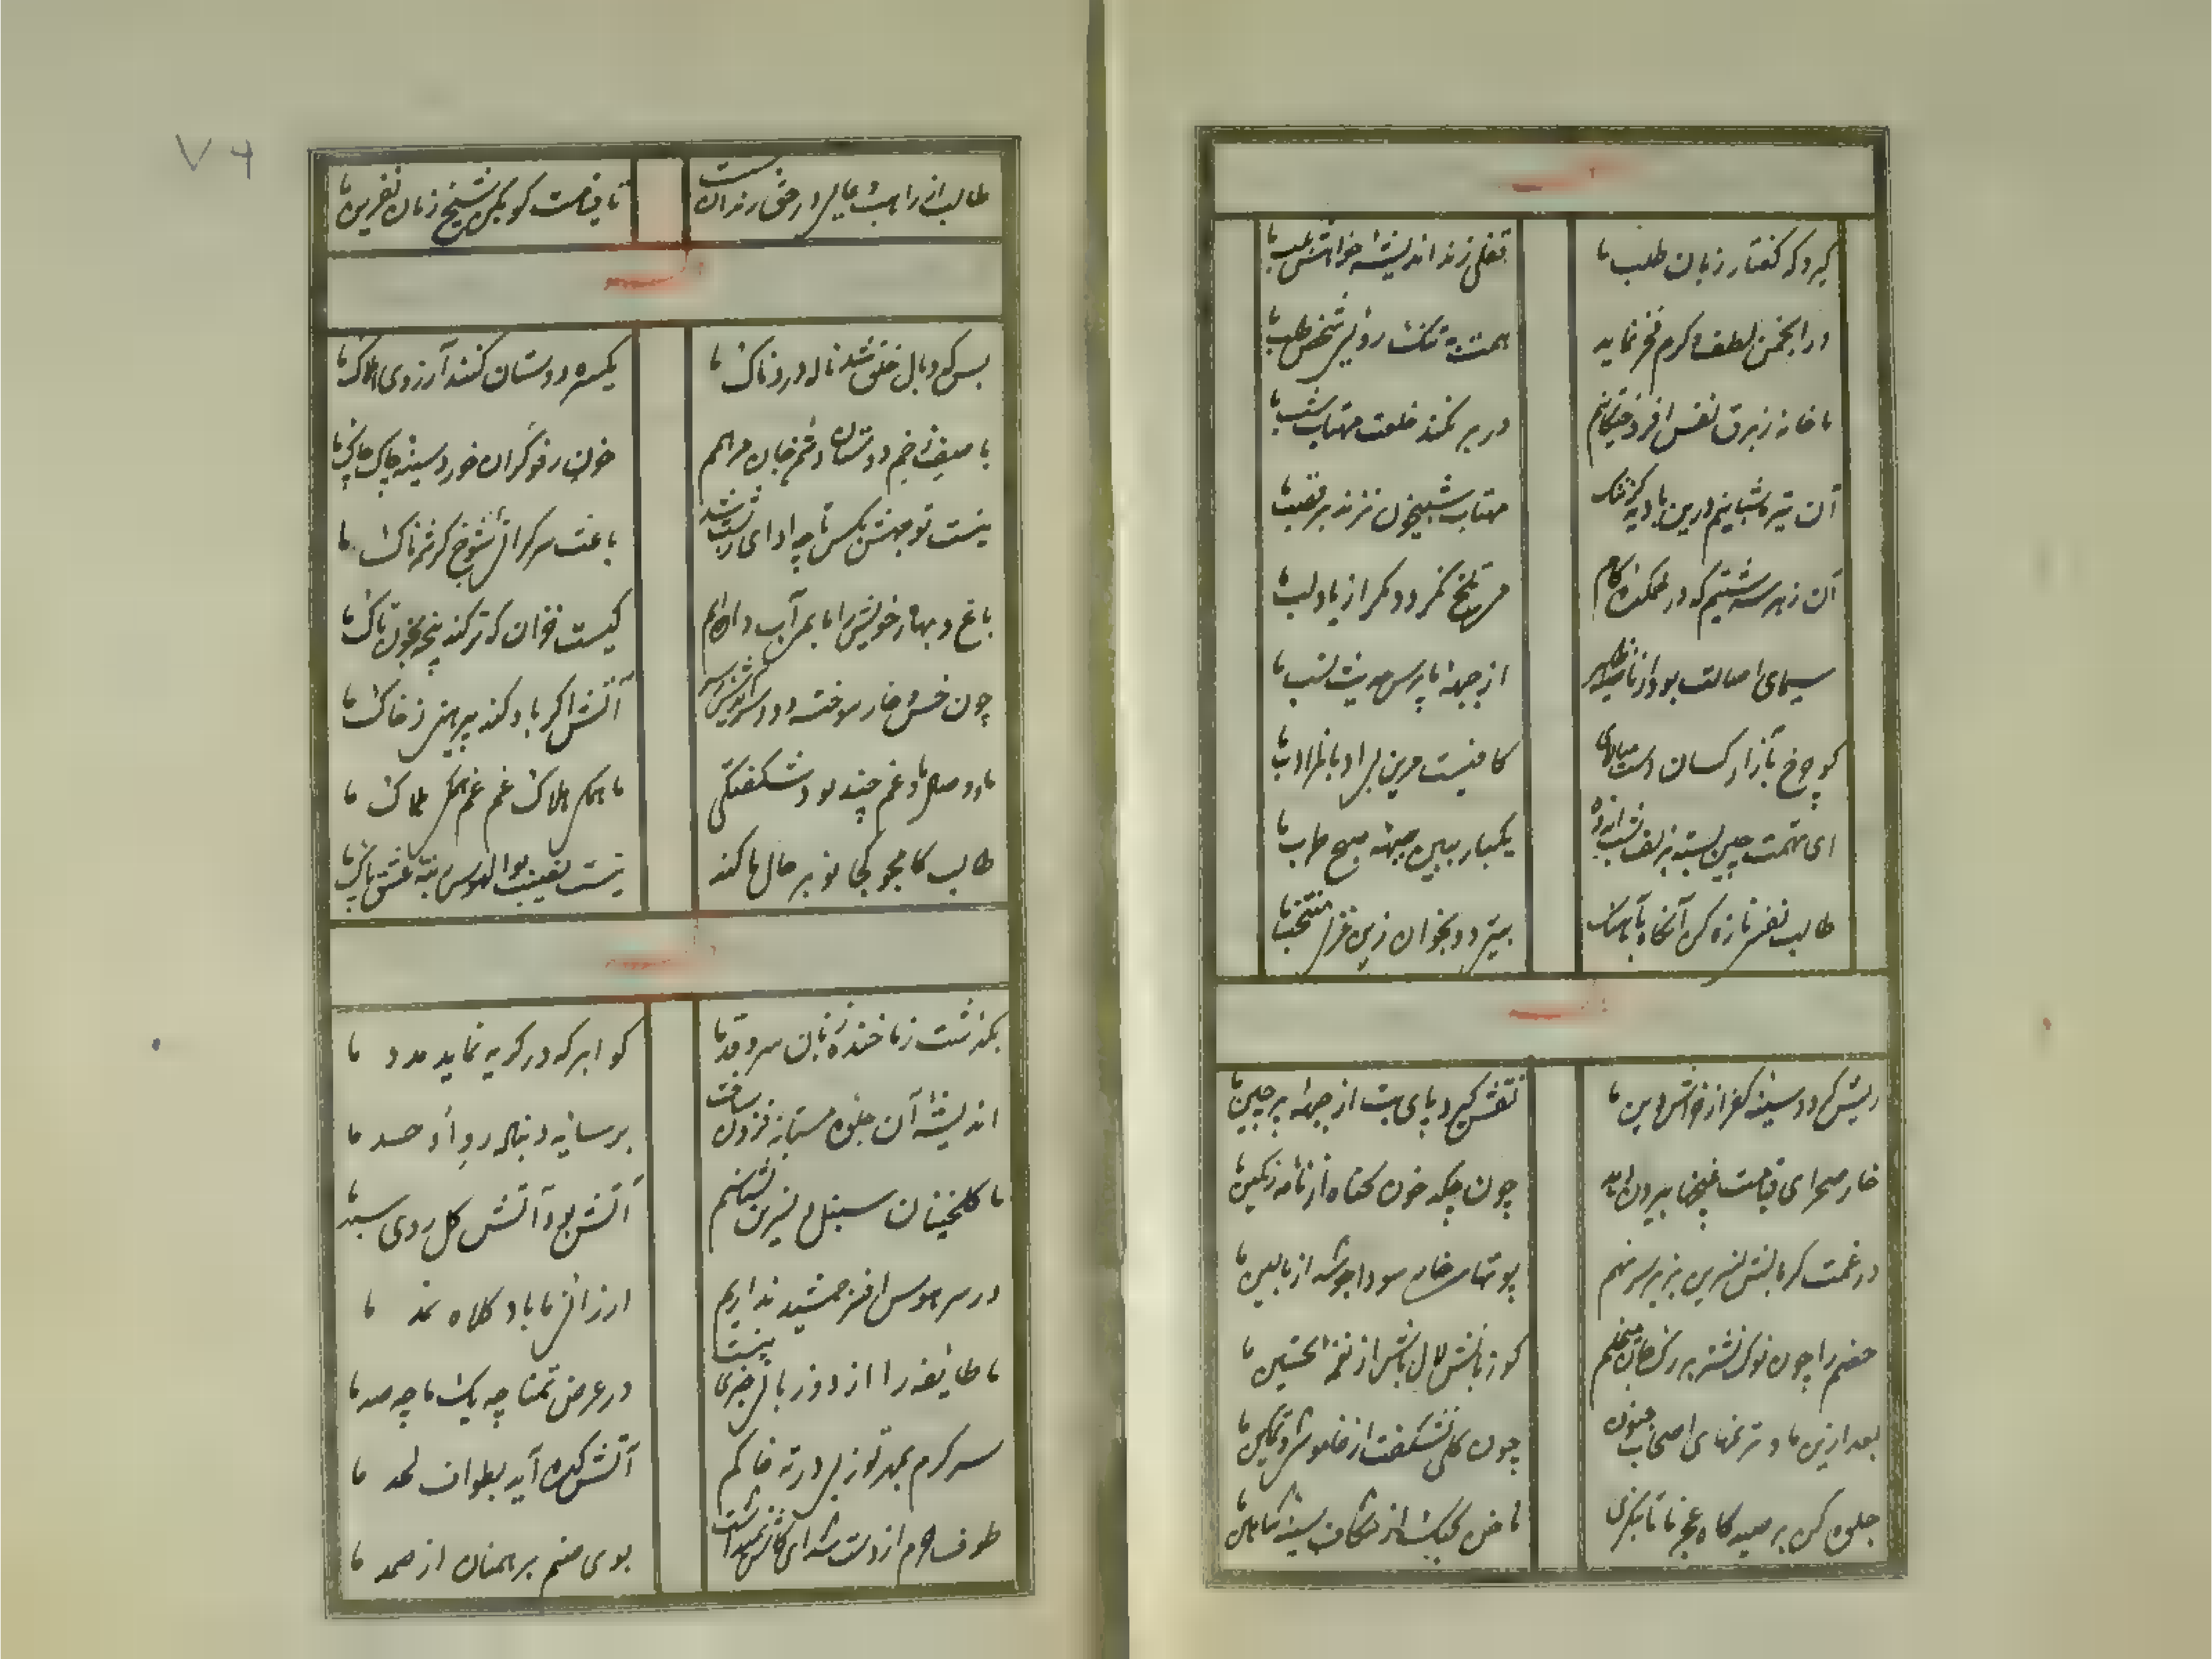 گیرد که گفتار زبان طلب ما
قفلی زند اندیشه خواهش بلب ما
در انجمن لطف و کرم فخر نماید
همت به تنک روئی شخص طلب ما
ما خانه ز برق نفس افروختگانیم
در بر نکند خلعت مهتاب شب ما
آن تیره شبانیم درین بادیه کز ننگ
مهتاب شبیخون نزند بر قصب ما
آن زهرسرشتیم که در غمکده کام
می تلخ نگردد مگر از یاد لب ما
سیمای اصالت بود از ناصیه ظاهر
از جبهه ما پرس حدیث نسب ما
کو چرخ بآزار کسان دست میالای
کافیست درین بی ادبانرا ادب ما
ای تهمت چین بسته بزلف شب اندوه
یکبار ببین جبهه صبح طرب ما
طالب نفسی تازه کن آنگاه بآهنگ
بیتی دو بخوان زین غزل منتخب ما
ریش کردد سینه کفر از خراش دین ما
نقش گیرد پای بت از جبهه پرچین ما
خار صحرای قیامت غنچه‌ها بیرون دهد
چون چکد خون گناه از نامه رنگین ما
در غمت گر بالش نسرین بزیر سر نهیم
بوتهاء خار سودا جوشد از بالین ما
خصم را چون نوک نشتر بر رگ جان میخلیم
کو زبانش لال باش از نغمه تحسین ما
بعد ازین ما و ترنمهای اصحاب جنون
چون گلی نشکفت از خاموشی و تمکین ما
جلوه کن بر صیدگاه عجز ما تا بنگری
ناخن کبک از شکاف سینه شاهین ما
طالب از راهب عالی در حق رندان بست
تا قیامت کو بکن شیخ زمان نفرین ما
بس که وبال خلق شد ناله دردناک ما
یکسره دوستان کنند آرزوی هلاک ما
با صف زخم دوستان دشمن جان مرهمیم
خون رفوگران خورد سینه چاک چاک ما
نیست تو جهش بکس تا چه ادای زشت شد
باعث سرگرانی شوخ کرشمه‌ناک ما
باغ و بهار خویش را ما بمی آب داده‌ایم
کیست خزان که تر کند پنجه بخون تاک ما
چون خس و خار سوخته دود
آتش اگر باد کند پیرهنی ز خاک ما
ما و وصال و غم چند بود شکفتگی
ما همگی هلاک غم غم همگی هلاک ما
طالب کامجو کجا نوبر حال ما کند
نیست نصیب بوالهوس میوه عشق پاک ما
بگذشت زما خنده زنان سرو قد ما
کو ابر که در گریه نماید مدد ما
اندیشه آن جلوه مستانه فزون ساخت
بر سایه دنباله رو او حسد ما
ما گلخنیان سنبل و نسرین نشناسیم
آتش بود آتش گل روی سبد ما
در سر هوس افسر جمشید نداریم
ارزانی ما باد کلاه نمد ما
ما طایفه را از دو زبانی خبری نیست
در عرض تمنا چه یک ما چه صد ما
سرگرم بمهر تو ز بس در ته خاکم
آتشکده آید بطواف لحد ما
طوف حرم از دست شد ای کاش نمیداشت
بوی صنم برهمنان از صمد ما
۷۶